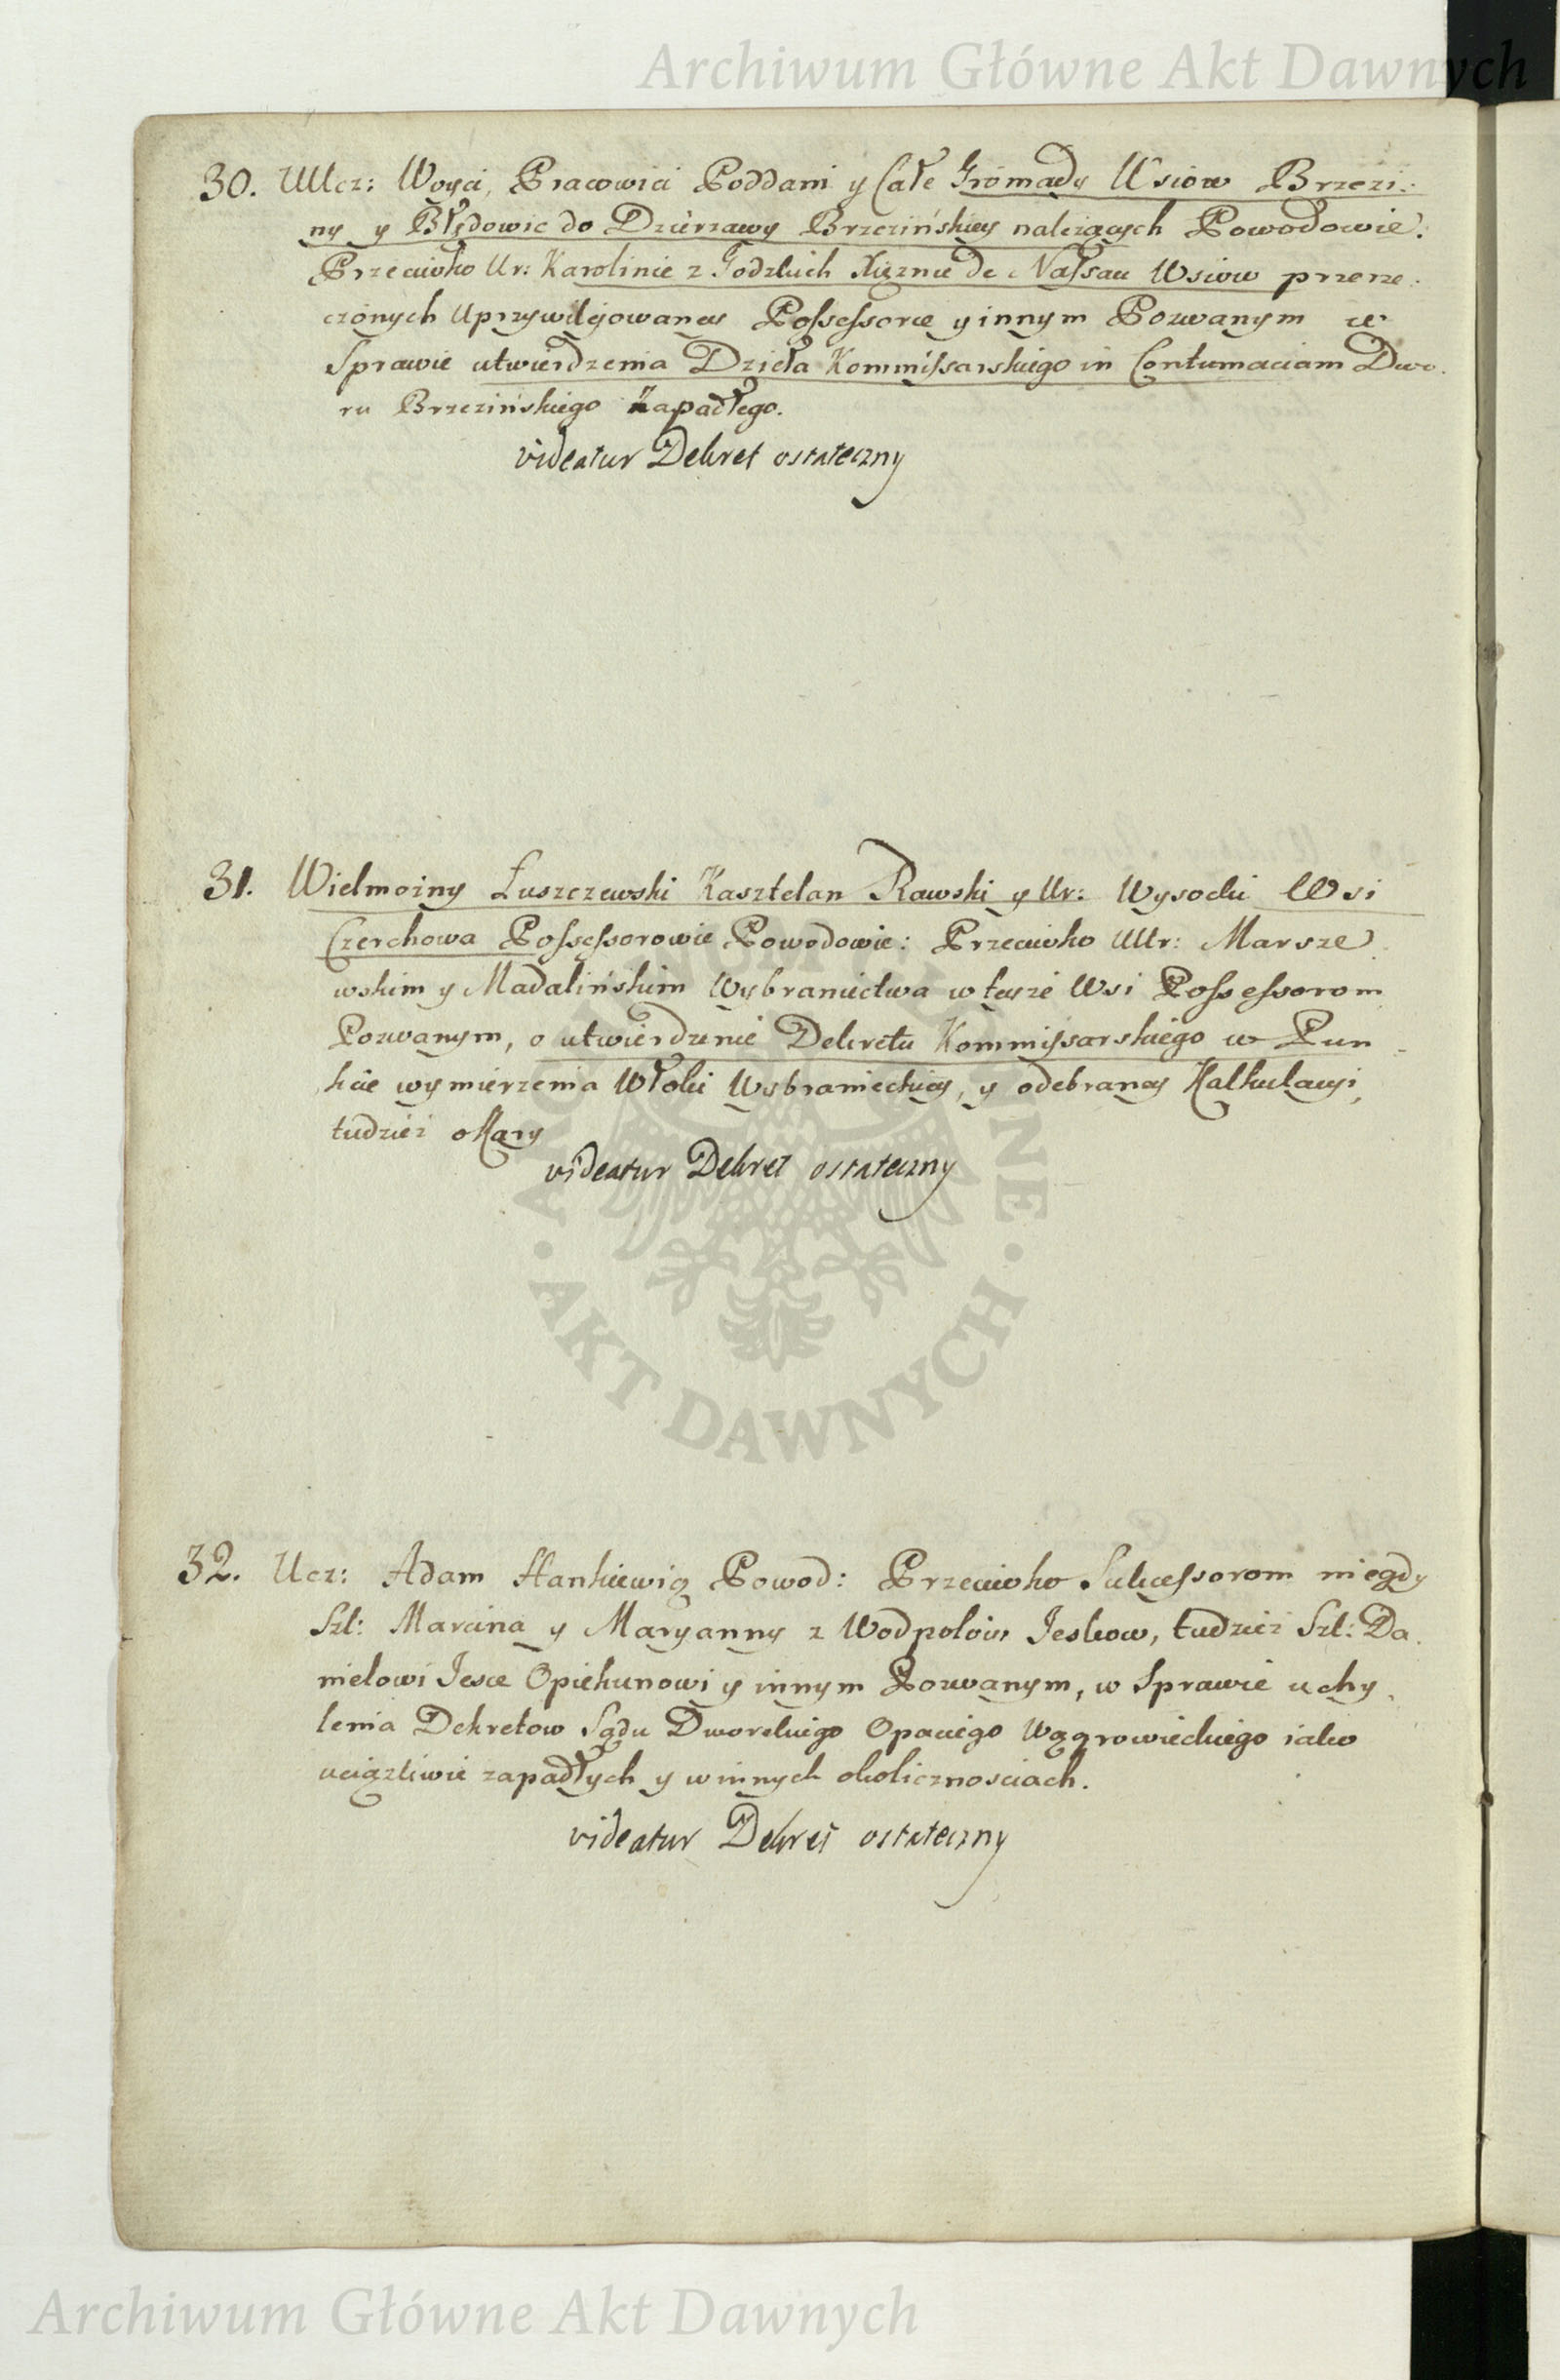 Archiwum Główne Akt Dawnych
30. UUcz: Woyci, Pracowici Poddani y Całe Gromady Wsiow Brzezi:
ny y Błędowic do Dzierzawy Brzezińskiey należących Powodowie:
Przeciwko Ur: Karolinie z Godzkich Xiężnie de Nassau Wsiow przerze:
czonych Uprzywilejowaney Possessorce y innym Pozwanym w
Sprawie utwierdzenia Dzieła Kommissarskiego in Contumaciam Dwo.
ru Brzezińskiego zapadłego.
videatur Dekret ostateczny
31. Wielmożny Łuszczewski Kasztelan Rawski y Ur: Wysocki Wsi
Czerchowa Possessorowie Powodowie: Przeciwko UUr: Marsze
wskim y Madalińskim Wybraniectwa w teyże Wsi Possessorom
Pozwanym, o utwierdzenie Dekretu Kommissarskiego w Pun
kcie wymierzenia Włoki Wybranieckiey, y odebraney Kalkulacyi,
tudzież o Kary
videatur Dekret ostateczny
32. Ucz: Adam Hankiewicz Powod: Przeciwko Sukcessorom niegdy
Szl: Marcina y Maryanny z Wodpolow Jeskow, tudzież Szl: Da
nielowi Jesce Opiekunowi y innym Pozwanym, w Sprawie uchy
lenia Dekretow Sądu Dworskiego Opaciego Wągrowieckiego iako
uciążliwie zapadłych y w innych okolicznosciach.
videatur Dekret ostateczny
AKT DAWNYCH
Archiwum Główne Akt Dawnych